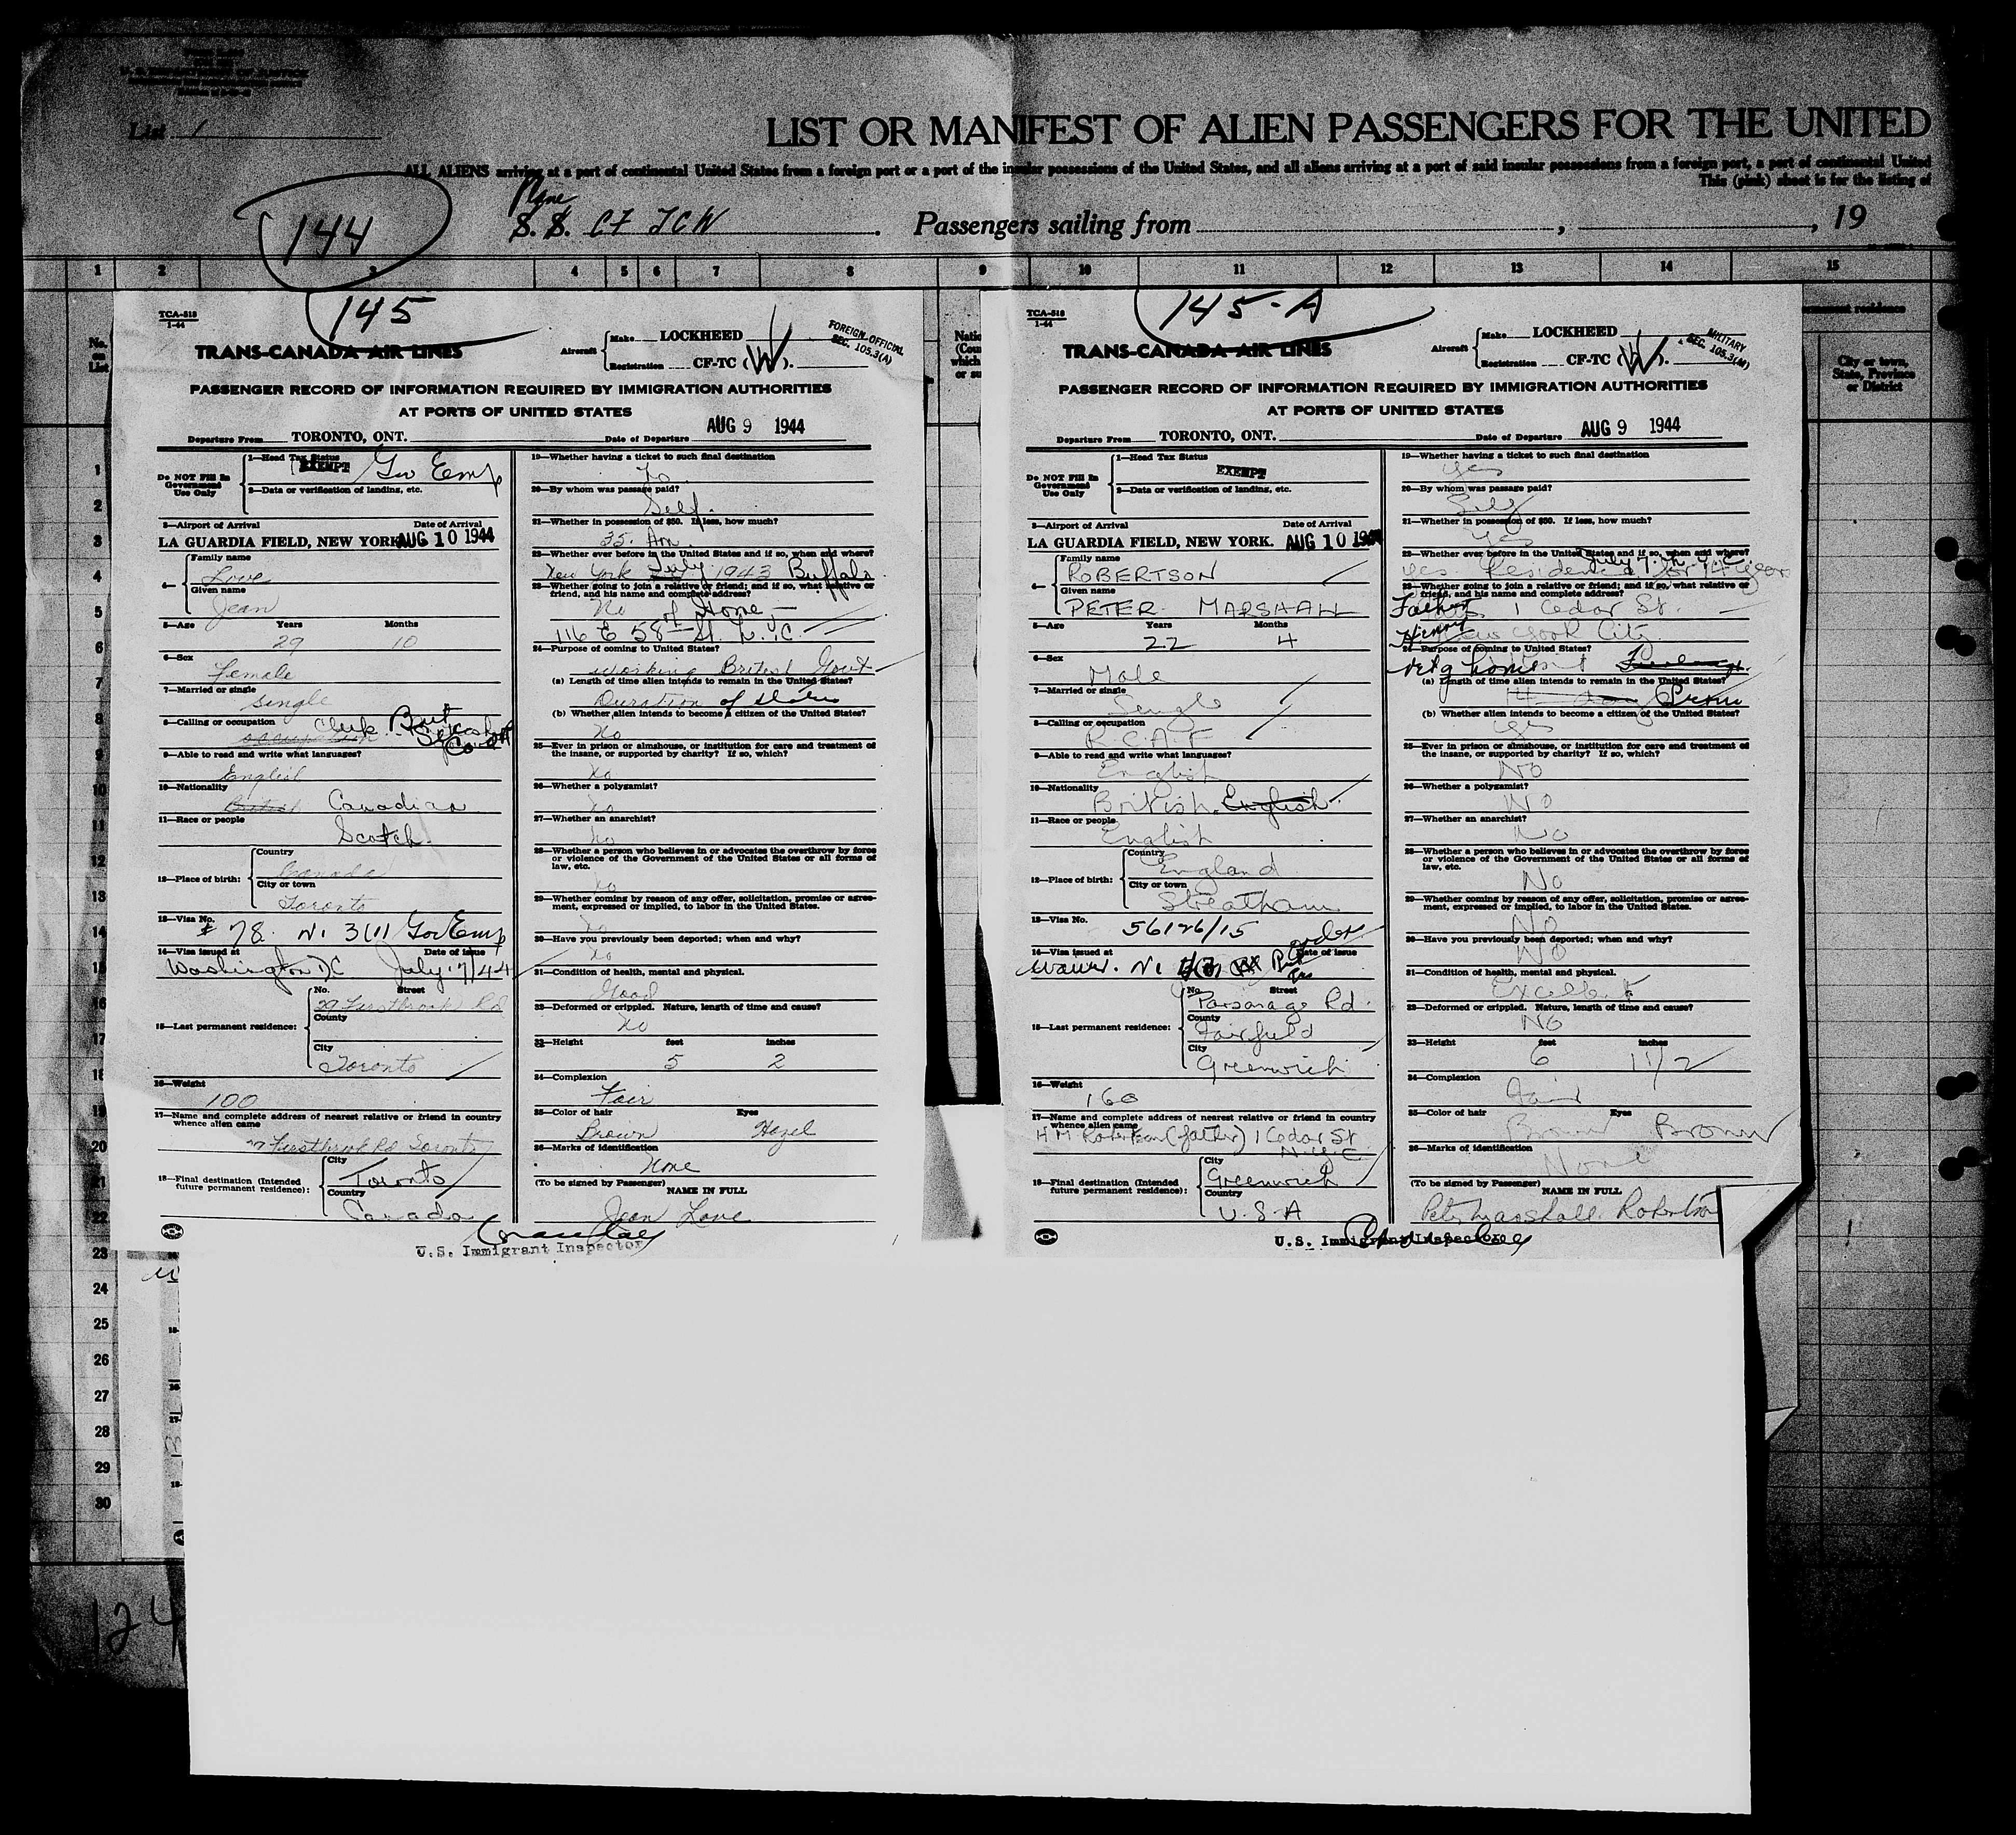 List 1
LIST OR MANIFEST OF ALIEN PASSENGERS FOR THE UNITED
ALL ALIENS arriving at a port of continental United States from a foreign port or a port of the insular possessions of the United States, and all aliens arriving at a port of said insular possessions from a foreign port, a port of continental United
This (pink) sheet is for the listing of
144
Plane
S. S. CF TCW. Passengers sailing from , , 19
1 2 3 4 5 6 7 8 9 10 11 12 13 14 15
No. on List
145
TCA-518
1-44
TRANS-CANADA AIR LINES
Aircraft Make LOCKHEED
Registration CF-TC (W).
FOREIGN OFFICIAL
SEC. 105.3(A)
PASSENGER RECORD OF INFORMATION REQUIRED BY IMMIGRATION AUTHORITIES
AT PORTS OF UNITED STATES
Departure From TORONTO, ONT. Date of Departure AUG 9 1944
Do NOT Fill In Government Use Only
1—Head Tax Status
EXEMPT Gov Emp
2—Data or verification of landing, etc.
3—Airport of Arrival Date of Arrival
LA GUARDIA FIELD, NEW YORK AUG 10 1944
4— Family name
Love
Given name
Jean
5—Age Years Months
29 10
6—Sex
Female
7—Married or single
Single
8—Calling or occupation
Clerk
9—Able to read and write what languages?
English
10—Nationality
British Canadian
11—Race or people
Scotch
12—Place of birth: Country
Canada
City or town
Toronto
13—Visa No.
# 78. N. 3(1) Gov Emp
14—Visa issued at Date of issue
Washington DC July 7/44
15—Last permanent residence: No. Street
29 Firstbrook Rd
County
City
Toronto
16—Weight
100
17—Name and complete address of nearest relative or friend in country whence alien came
29 Firstbrook Rd Toronto
18—Final destination (Intended future permanent residence): City
Toronto
Country
Canada
19—Whether having a ticket to such final destination
No
20—By whom was passage paid?
Self.
21—Whether in possession of $50. If less, how much?
35. Am.
22—Whether ever before in the United States and if so, when and where?
New York July 1943 Buffalo
23—Whether going to join a relative or friend; and if so, what relative or friend, and his name and complete address?
No
116 E 58th St. N.Y.C.
24—Purpose of coming to United States?
Working British Govt
(a) Length of time alien intends to remain in the United States?
Duration of status
(b) Whether alien intends to become a citizen of the United States?
No
25—Ever in prison or almshouse, or institution for care and treatment of the insane, or supported by charity? If so, which?
No
26—Whether a polygamist?
No
27—Whether an anarchist?
No
28—Whether a person who believes in or advocates the overthrow by force or violence of the Government of the United States or all forms of law, etc.
No
29—Whether coming by reason of any offer, solicitation, promise or agreement, expressed or implied, to labor in the United States.
No
30—Have you previously been deported; when and why?
No
31—Condition of health, mental and physical.
Good
32—Deformed or crippled. Nature, length of time and cause?
No
33—Height feet inches
5 2
34—Complexion
Fair
35—Color of hair Eyes
Brown Hazel
36—Marks of identification
None
(To be signed by Passenger) NAME IN FULL
Jean Love
U.S. Immigrant Inspector
145-A
TCA-518
1-44
TRANS-CANADA AIR LINES
Aircraft Make LOCKHEED
Registration CF-TC (W).
MILITARY
SEC. 105.3(M)
PASSENGER RECORD OF INFORMATION REQUIRED BY IMMIGRATION AUTHORITIES
AT PORTS OF UNITED STATES
Departure From TORONTO, ONT. Date of Departure AUG 9 1944
Do NOT Fill In Government Use Only
1—Head Tax Status
EXEMPT
2—Data or verification of landing, etc.
3—Airport of Arrival Date of Arrival
LA GUARDIA FIELD, NEW YORK. AUG 10 1944
4— Family name
ROBERTSON
Given name
PETER MARSHALL
5—Age Years Months
22 4
6—Sex
Male
7—Married or single
Single
8—Calling or occupation
R.C.A.F
9—Able to read and write what languages?
English
10—Nationality
British. English.
11—Race or people
English
12—Place of birth: Country
England
City or town
Streatham
13—Visa No.
56126/15
14—Visa issued at Date of issue
Waiver.
15—Last permanent residence: No. Street
Parsonage Rd.
County
Fairfield
City
Greenwich
16—Weight
160
17—Name and complete address of nearest relative or friend in country whence alien came
H M Robertson (father) 1 Cedar St
N.Y.C
18—Final destination (Intended future permanent residence): City
Greenwich
Country
U.S.A
19—Whether having a ticket to such final destination
Yes
20—By whom was passage paid?
Self
21—Whether in possession of $50. If less, how much?
Yes
22—Whether ever before in the United States and if so, when and where?
Yes. Residence for
23—Whether going to join a relative or friend; and if so, what relative or friend, and his name and complete address?
Father 1 Cedar St.
Henry New York City
24—Purpose of coming to United States?
retg home
(a) Length of time alien intends to remain in the United States?
Perm
(b) Whether alien intends to become a citizen of the United States?
Yes
25—Ever in prison or almshouse, or institution for care and treatment of the insane, or supported by charity? If so, which?
No
26—Whether a polygamist?
No
27—Whether an anarchist?
No
28—Whether a person who believes in or advocates the overthrow by force or violence of the Government of the United States or all forms of law, etc.
No
29—Whether coming by reason of any offer, solicitation, promise or agreement, expressed or implied, to labor in the United States.
No
30—Have you previously been deported; when and why?
No
31—Condition of health, mental and physical.
Excellent
32—Deformed or crippled. Nature, length of time and cause?
No
33—Height feet inches
6 1 1/2
34—Complexion
Fair
35—Color of hair Eyes
Brown Brown
36—Marks of identification
None
(To be signed by Passenger) NAME IN FULL
Peter Marshall Robertson
U.S. Immigrant Inspector
City or town, State, Province or District
1
2
3
4
5
6
7
8
9
10
11
12
13
14
15
16
17
18
19
20
21
22
23
24
25
26
27
28
29
30
124